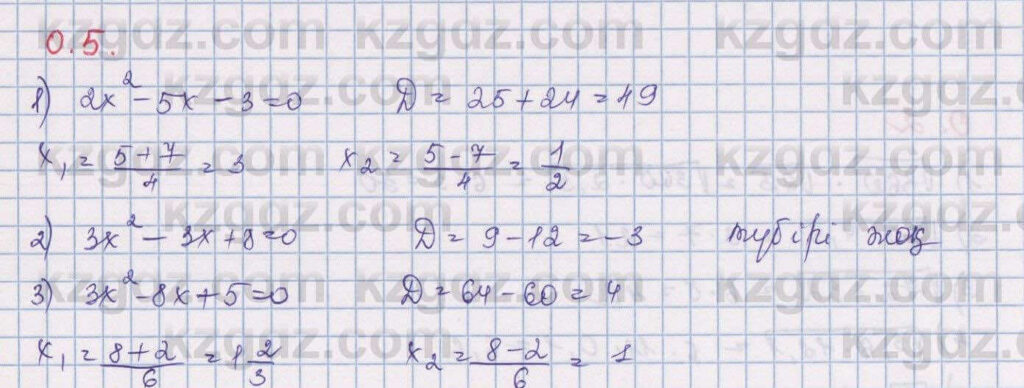 0.5.
1) 2x² - 5x - 3 = 0 D = 25 + 24 = 49
x₁ = (5+7)/4 = 3 x₂ = (5-7)/4 = 1/2
2) 3x² - 3x + 8 = 0 D = 9 - 12 = -3 түбірі жоқ
3) 3x² - 8x + 5 = 0 D = 64 - 60 = 4
x₁ = (8+2)/6 = 1 2/3 x₂ = (8-2)/6 = 1
kzgdz.com